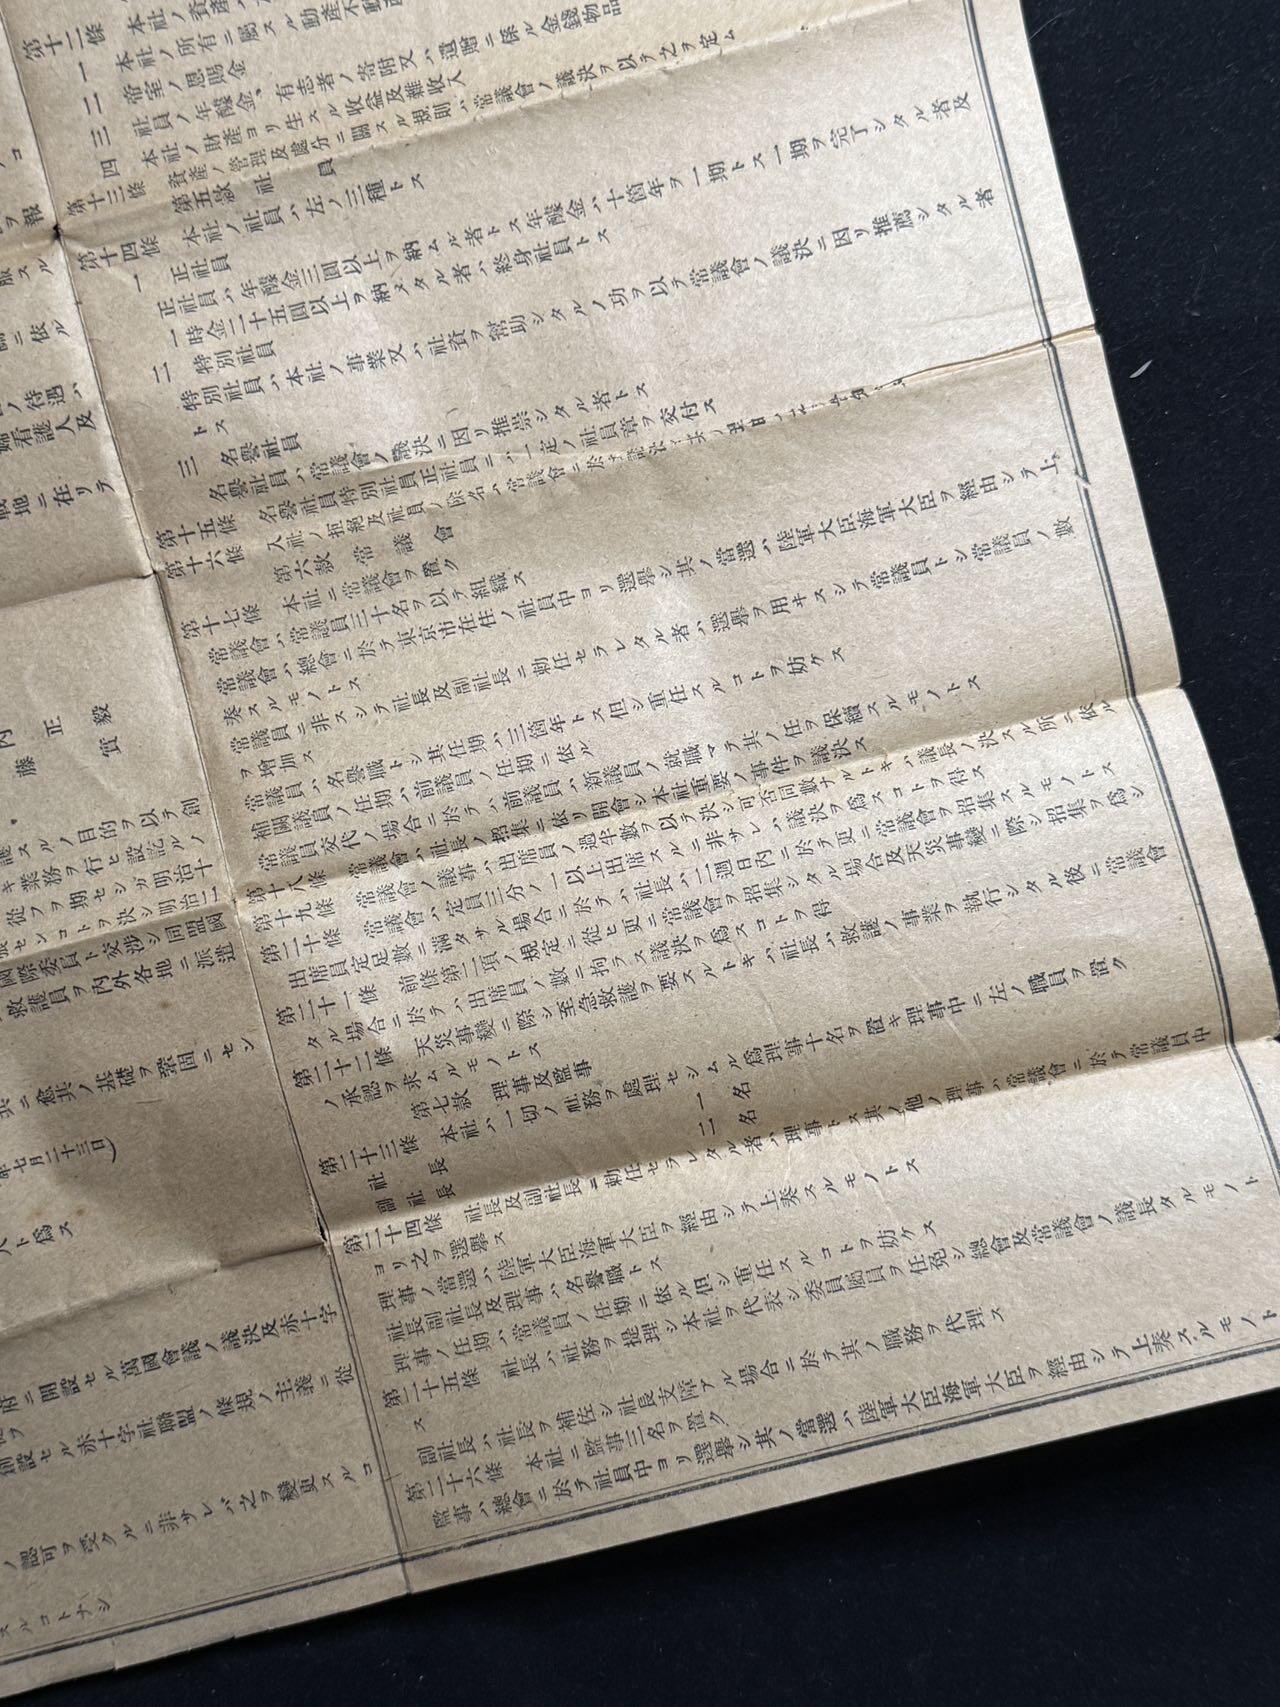 ヲ報
服スル
ニ依ル
ノ待遇ハ
婦看護人及
地ニ在リテ
正毅
藤實
護スルノ目的ヲ以テ創
キ業務ヲ行ヒ設シルノ
從フヲ期セシガ明治十
張センコトヲ決シ明治二
國際委員ト交渉シ同盟國
救護員ヲ內外各地ニ派遣
共ニ愈其ノ基礎ヲ鞏固ニセン
年七月二十三日)
ト爲ス
府ニ開設セル萬國會議ノ議決及赤十字
創設セル赤十字社聯盟ノ條規ノ主義ニ從
ノ認可ヲ受クルニ非サレバ之ヲ變更スルコ
スルコトナシ
第十二條 本社ノ資產ハ
一 本社ノ所有ニ屬スル動產不動
二 帝室ノ恩賜金
三 社員ノ年醵金、有志者ノ寄附又ハ遺贈ニ係ル金錢物品
四 本社ノ財產ヨリ生スル收益及雜收入
第十三條 資產ノ管理及處分ニ關スル規則ハ常議會ノ議決ヲ以テ之ヲ定ム
第五款 社員
第十四條 本社ノ社員ハ左ノ三種トス
一 正社員
正社員ハ年醵金三圓以上ヲ納ムル者トス年醵金ハ十箇年ヲ一期トス一期ヲ完了シタル者及
一時金二十五圓以上ヲ納メタル者ハ終身社員トス
二 特別社員
特別社員ハ本社ノ事業又ハ社資ヲ幫助シタルノ功ヲ以テ常議會ノ議決ニ因リ推薦シタル者
トス
三 名譽社員
名譽社員ハ常議會ノ議決ニ因リ推崇シタル者トス
第十五條 名譽社員特別社員正社員ニハ一定ノ社員章ヲ交付ス
第十六條 入社ノ拒絕及社員ノ除名ハ常議會ニ於テ議決
第六款 常議會
第十七條 本社ニ常議會ヲ置ク
常議會ハ常議員三十名ヲ以テ組織ス
常議會ハ總會ニ於テ東京市在住ノ社員中ヨリ選擧シ其ノ當選ハ陸軍大臣海軍大臣ヲ經由シテ上
奏スルモノトス
常議員ニ非スシテ社長及副社長ニ勅任セラレタル者ハ選擧ヲ用ヰスシテ常議員トシ常議員ノ數
ヲ增加ス
常議員ハ名譽職トシ其任期ハ三箇年トス但シ重任スルコトヲ妨ケス
補闕議員ノ任期ハ前議員ノ任期ニ依ル
常議員交代ノ場合ニ於テハ前議員ハ新議員ノ就職マテ其ノ任ヲ保續スルモノトス
第十八條 常議會ハ社長ノ招集ニ依リ開會シ本社重要ノ事件ヲ議決ス
第十九條 常議會ノ議事ハ出席員ノ過半數ヲ以テ決シ可否同數ナルトキハ議長ノ決スル所ニ依ル
第二十條 常議會ハ定員三分ノ一以上出席スルニ非サレハ議決ヲ爲スコトヲ得ス
出席員定足數ニ滿タサル場合ニ於テハ社長ハ二週日內ニ於テ更ニ常議會ヲ招集スルモノトス
第二十一條 前條第二項ノ規定ニ從ヒ更ニ常議會ヲ招集シタル場合及天災事變ニ際シ招集ヲ爲シ
タル場合ニ於テハ出席員ノ數ニ拘ラス議決ヲ爲スコトヲ得
第二十二條 天災事變ニ際シ至急救護ヲ要スルトキハ社長ハ救護ノ事業ヲ執行シタル後ニ常議會
ノ承認ヲ求ムルモノトス
第七款 理事及監事
第二十三條 本社ハ一切ノ社務ヲ處理セシムル爲理事十名ヲ置キ理事中ニ左ノ職員ヲ置ク
社長 一名
副社長 二名
第二十四條 社長及副社長ニ勅任セラレタル者ハ理事トス其ノ他ノ理事ハ常議會ニ於テ常議員中
ヨリ之ヲ選擧ス
理事ノ當選ハ陸軍大臣海軍大臣ヲ經由シテ上奏スルモノトス
社長副社長及理事ハ名譽職トス
理事ノ任期ハ常議員ノ任期ニ依ル但シ重任スルコトヲ妨ケス
第二十五條 社長ハ社務ヲ提理シ本社ヲ代表シ委員屬員ヲ任免シ總會及常議會ノ議長タルモノト
ス
副社長ハ社長ヲ補佐シ社長支障アル場合ニ於テ其ノ職務ヲ代理ス
第二十六條 本社ニ監事三名ヲ置ク
監事ハ總會ニ於テ社員中ヨリ選擧シ其ノ當選ハ陸軍大臣海軍大臣ヲ經由シテ上奏スルモノト